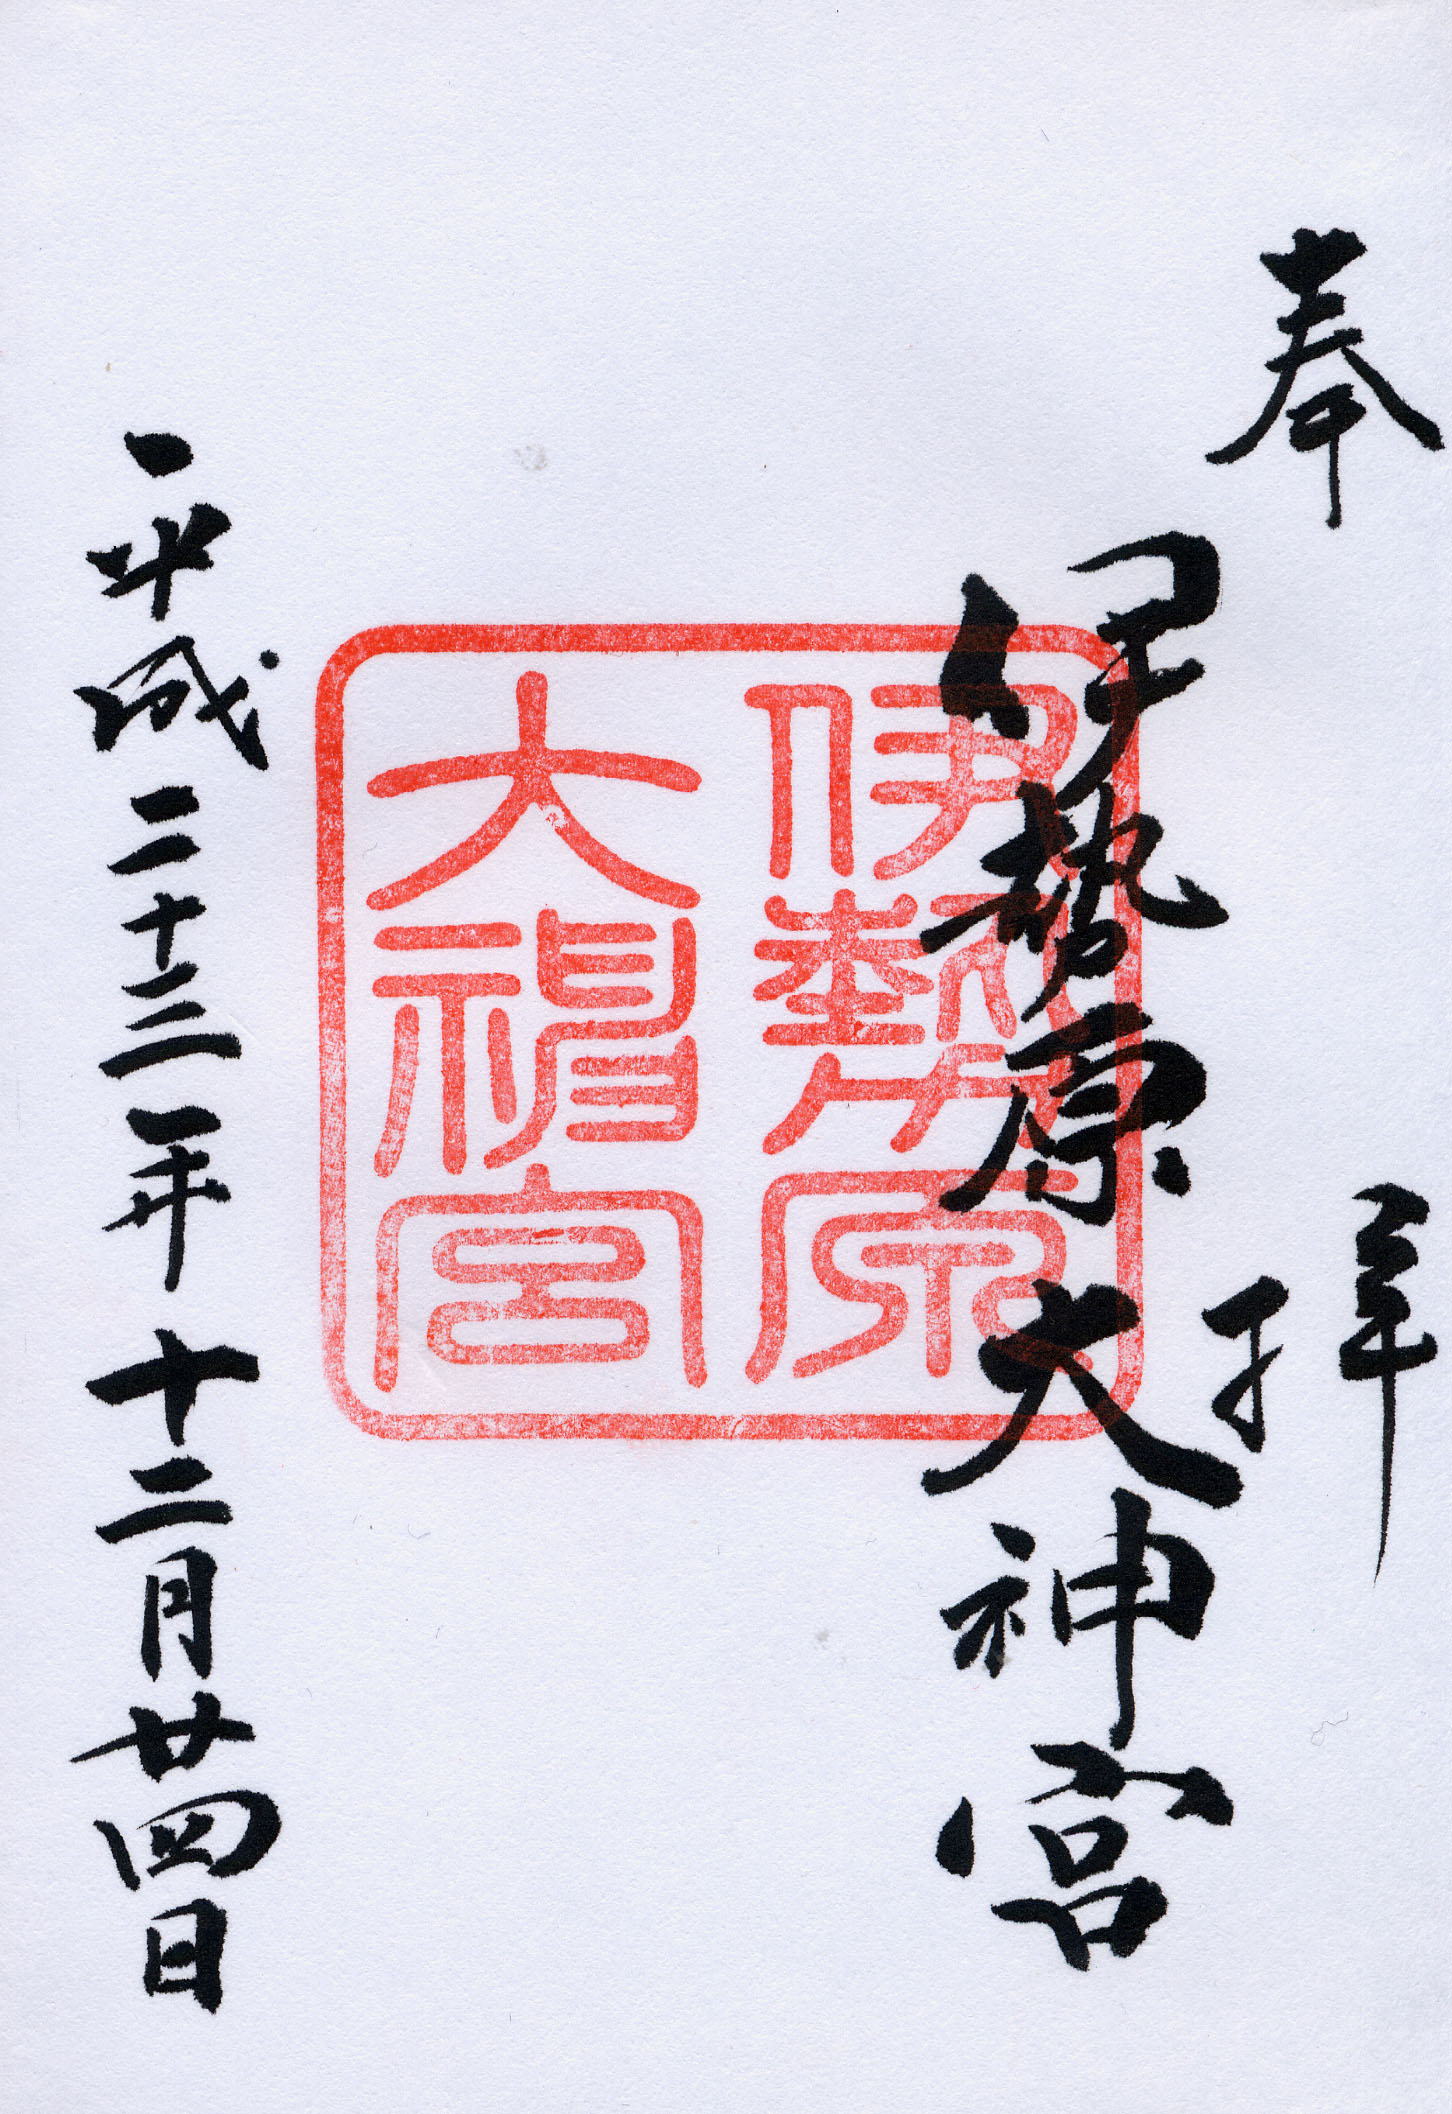 奉拝
伊勢原大神宮
伊勢原
大神宮
平成二十三年十二月廿四日